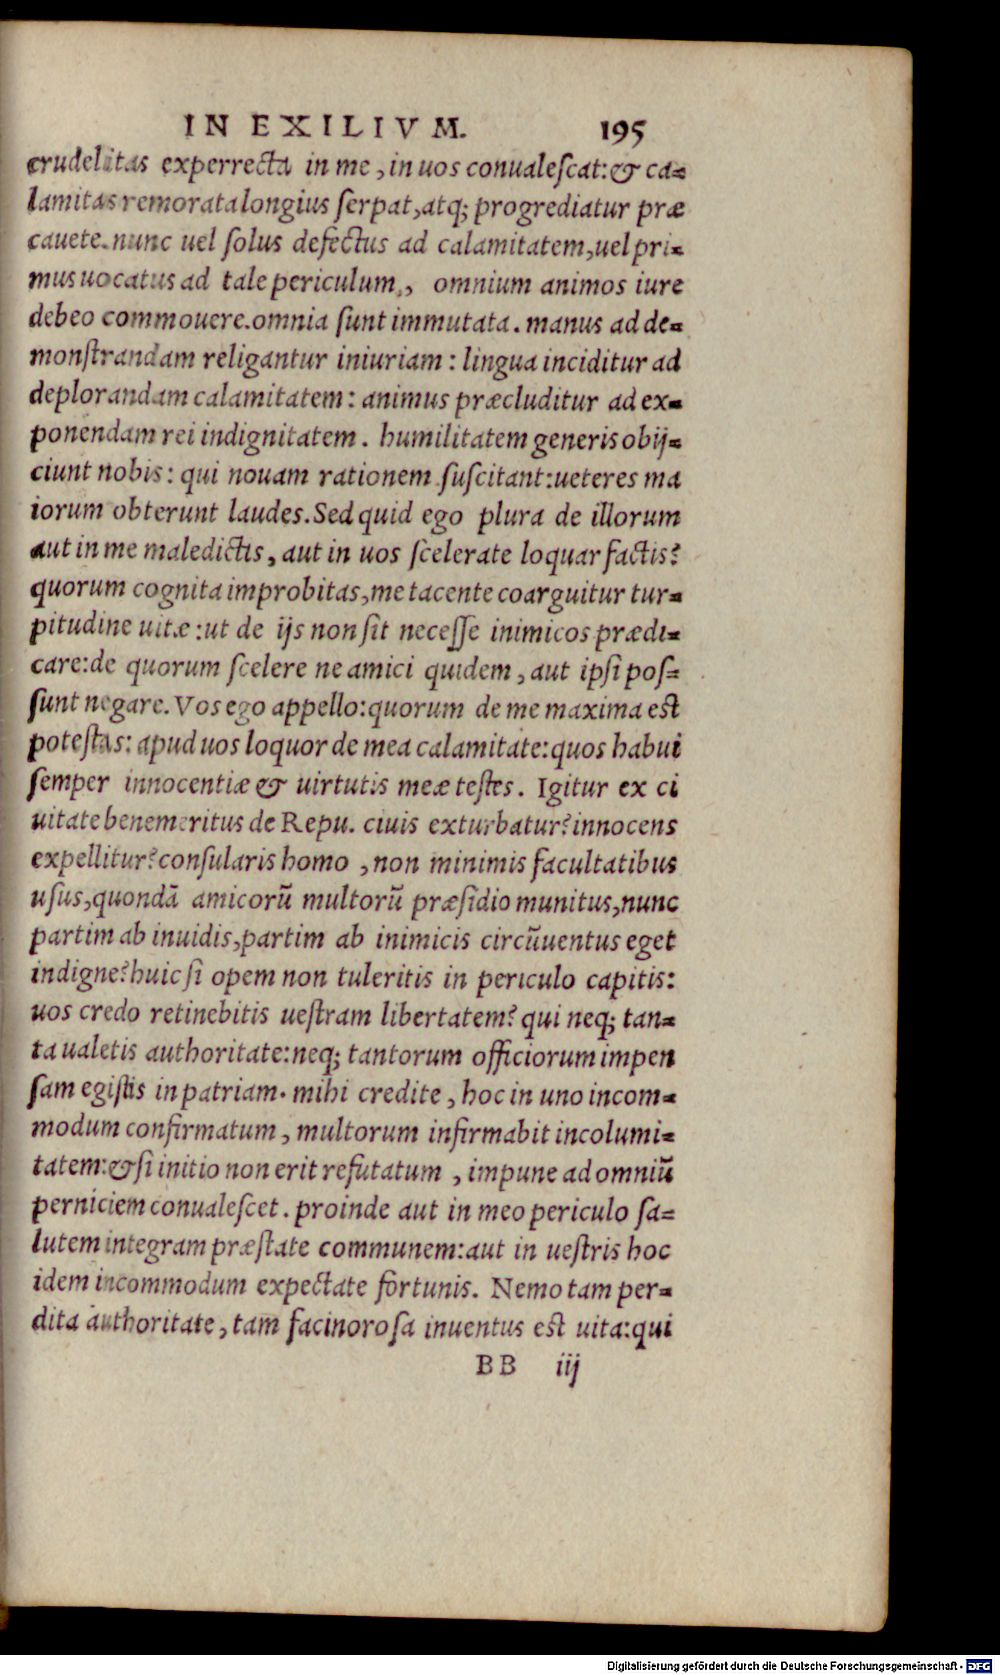 IN EXILIVM. 195
crudelitas experrecta in me, in uos conualeſcat: & ca-
lamitas remorata longius ſerpat, atq; progrediatur præ
cauete. nunc uel ſolus defectus ad calamitatem, uel pri-
mus uocatus ad tale periculum, omnium animos iure
debeo commouere. omnia ſunt immutata. manus ad de-
monſtrandam religantur iniuriam: lingua inciditur ad
deplorandam calamitatem: animus præcluditur ad ex-
ponendam rei indignitatem. humilitatem generis obij-
ciunt nobis: qui nouam rationem ſuſcitant: ueteres ma
iorum obterunt laudes. Sed quid ego plura de illorum
aut in me maledictis, aut in uos ſcelerate loquar factis?
quorum cognita improbitas, me tacente coarguitur tur-
pitudine uitæ: ut de ijs non ſit neceſſe inimicos prædi-
care: de quorum ſcelere ne amici quidem, aut ipſi poſ-
ſunt negare. Vos ego appello: quorum de me maxima est
poteſtas: apud uos loquor de mea calamitate: quos habui
ſemper innocentiæ & uirtutis meæ teſtes. Igitur ex ci
uitate benemeritus de Repu. ciuis exturbatur? innocens
expellitur? conſularis homo, non minimis facultatibus
uſus, quondã amicorũ multorũ præſidio munitus, nunc
partim ab inuidis, partim ab inimicis circũuentus eget
indigne? huic ſi opem non tuleritis in periculo capitis:
uos credo retinebitis ueſtram libertatem? qui neq; tan-
ta ualetis authoritate: neq; tantorum officiorum impen
ſam egiſtis in patriam. mihi credite, hoc in uno incom-
modum confirmatum, multorum infirmabit incolumi-
tatem: & ſi initio non erit refutatum, impune ad omniũ
perniciem conualeſcet. proinde aut in meo periculo ſa-
lutem integram præſtate communem: aut in ueſtris hoc
idem incommodum expectate fortunis. Nemo tam per-
dita authoritate, tam facinoroſa inuentus eſt uita: qui
BB iij
Digitalisierung gefördert durch die Deutsche Forschungsgemeinschaft - DFG